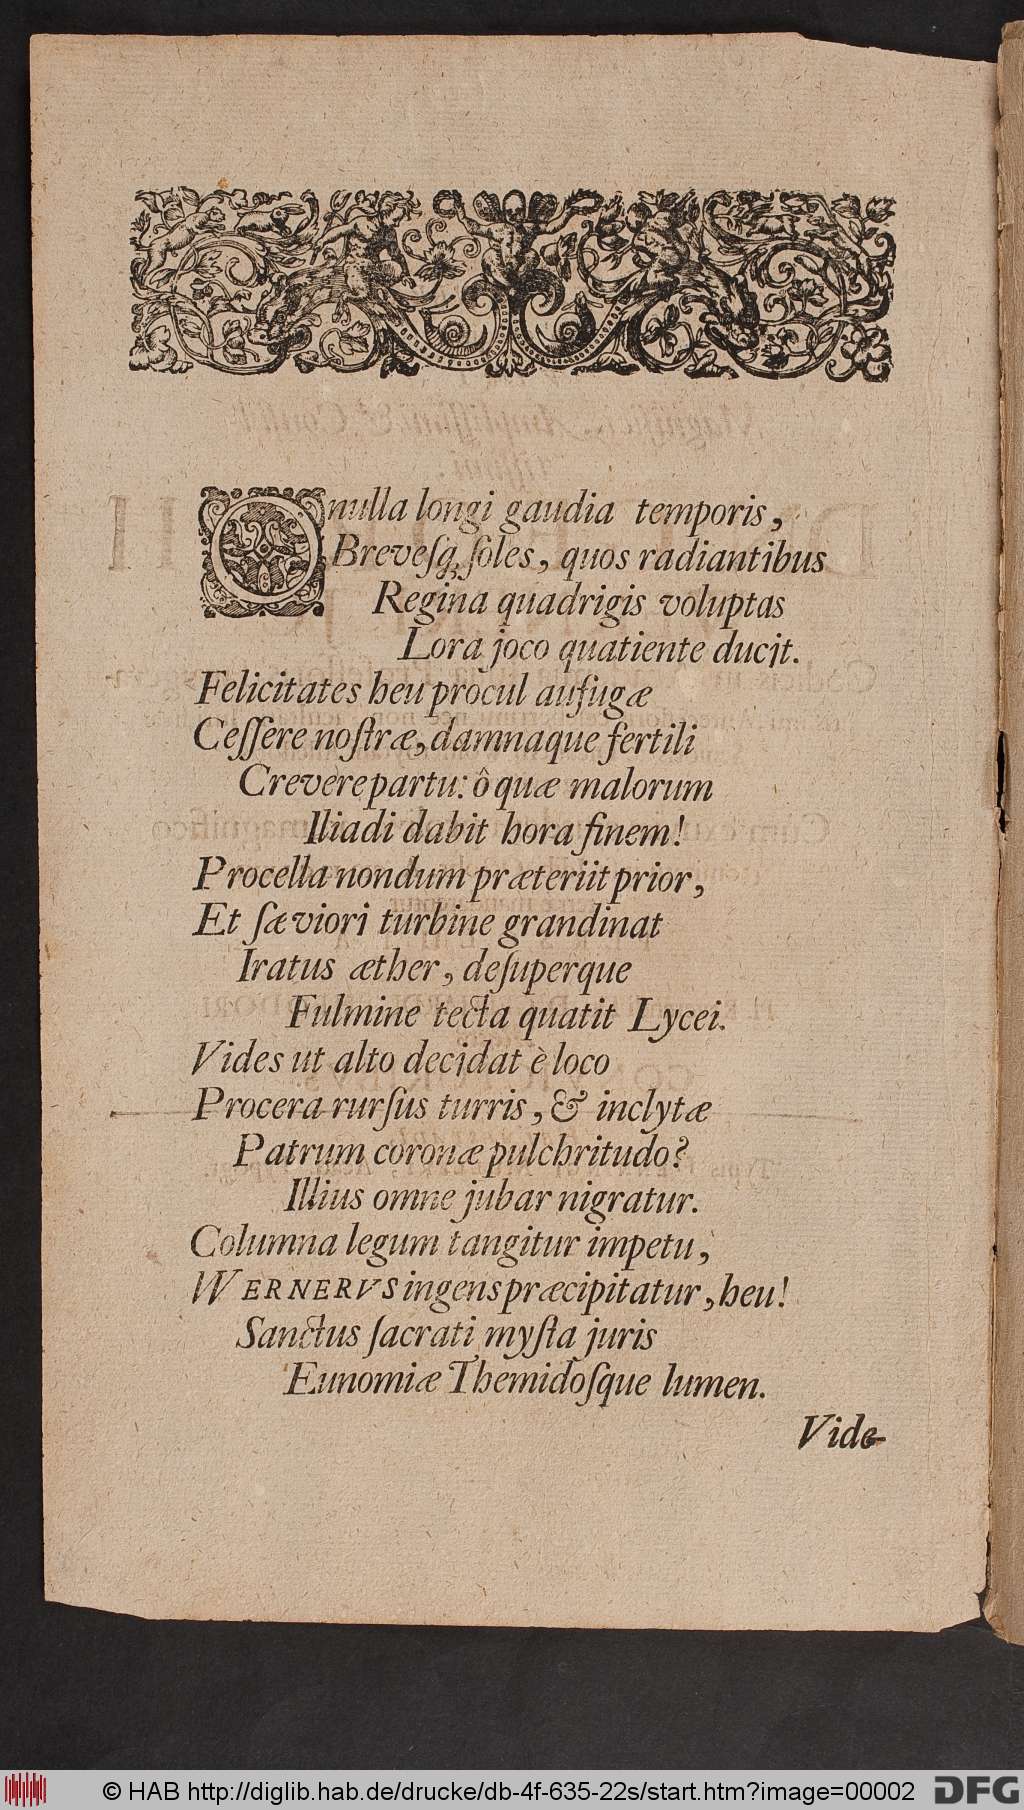 O nulla longi gaudia temporis,
Breveſq; ſoles, quos radiantibus
Regina quadrigis voluptas
Lora joco quatiente ducit.
Felicitates heu procul aufugæ
Ceſſere noſtræ, damnaque fertili
Crevere partu: ô quæ malorum
Iliadi dabit hora finem!
Procella nondum præteriit prior,
Et ſæviori turbine grandinat
Iratus æther, deſuperque
Fulmine tecta quatit Lycei.
Vides ut alto decidat è loco
Procera rurſus turris, & inclytæ
Patrum coronæ pulchritudo?
Illius omne jubar nigratur.
Columna legum tangitur impetu,
WERNERVS ingens præcipitatur, heu!
Sanctus ſacrati myſta juris
Eunomiæ Themidoſque lumen.
Vide-
© HAB http://diglib.hab.de/drucke/db-4f-635-22s/start.htm?image=00002
DFG